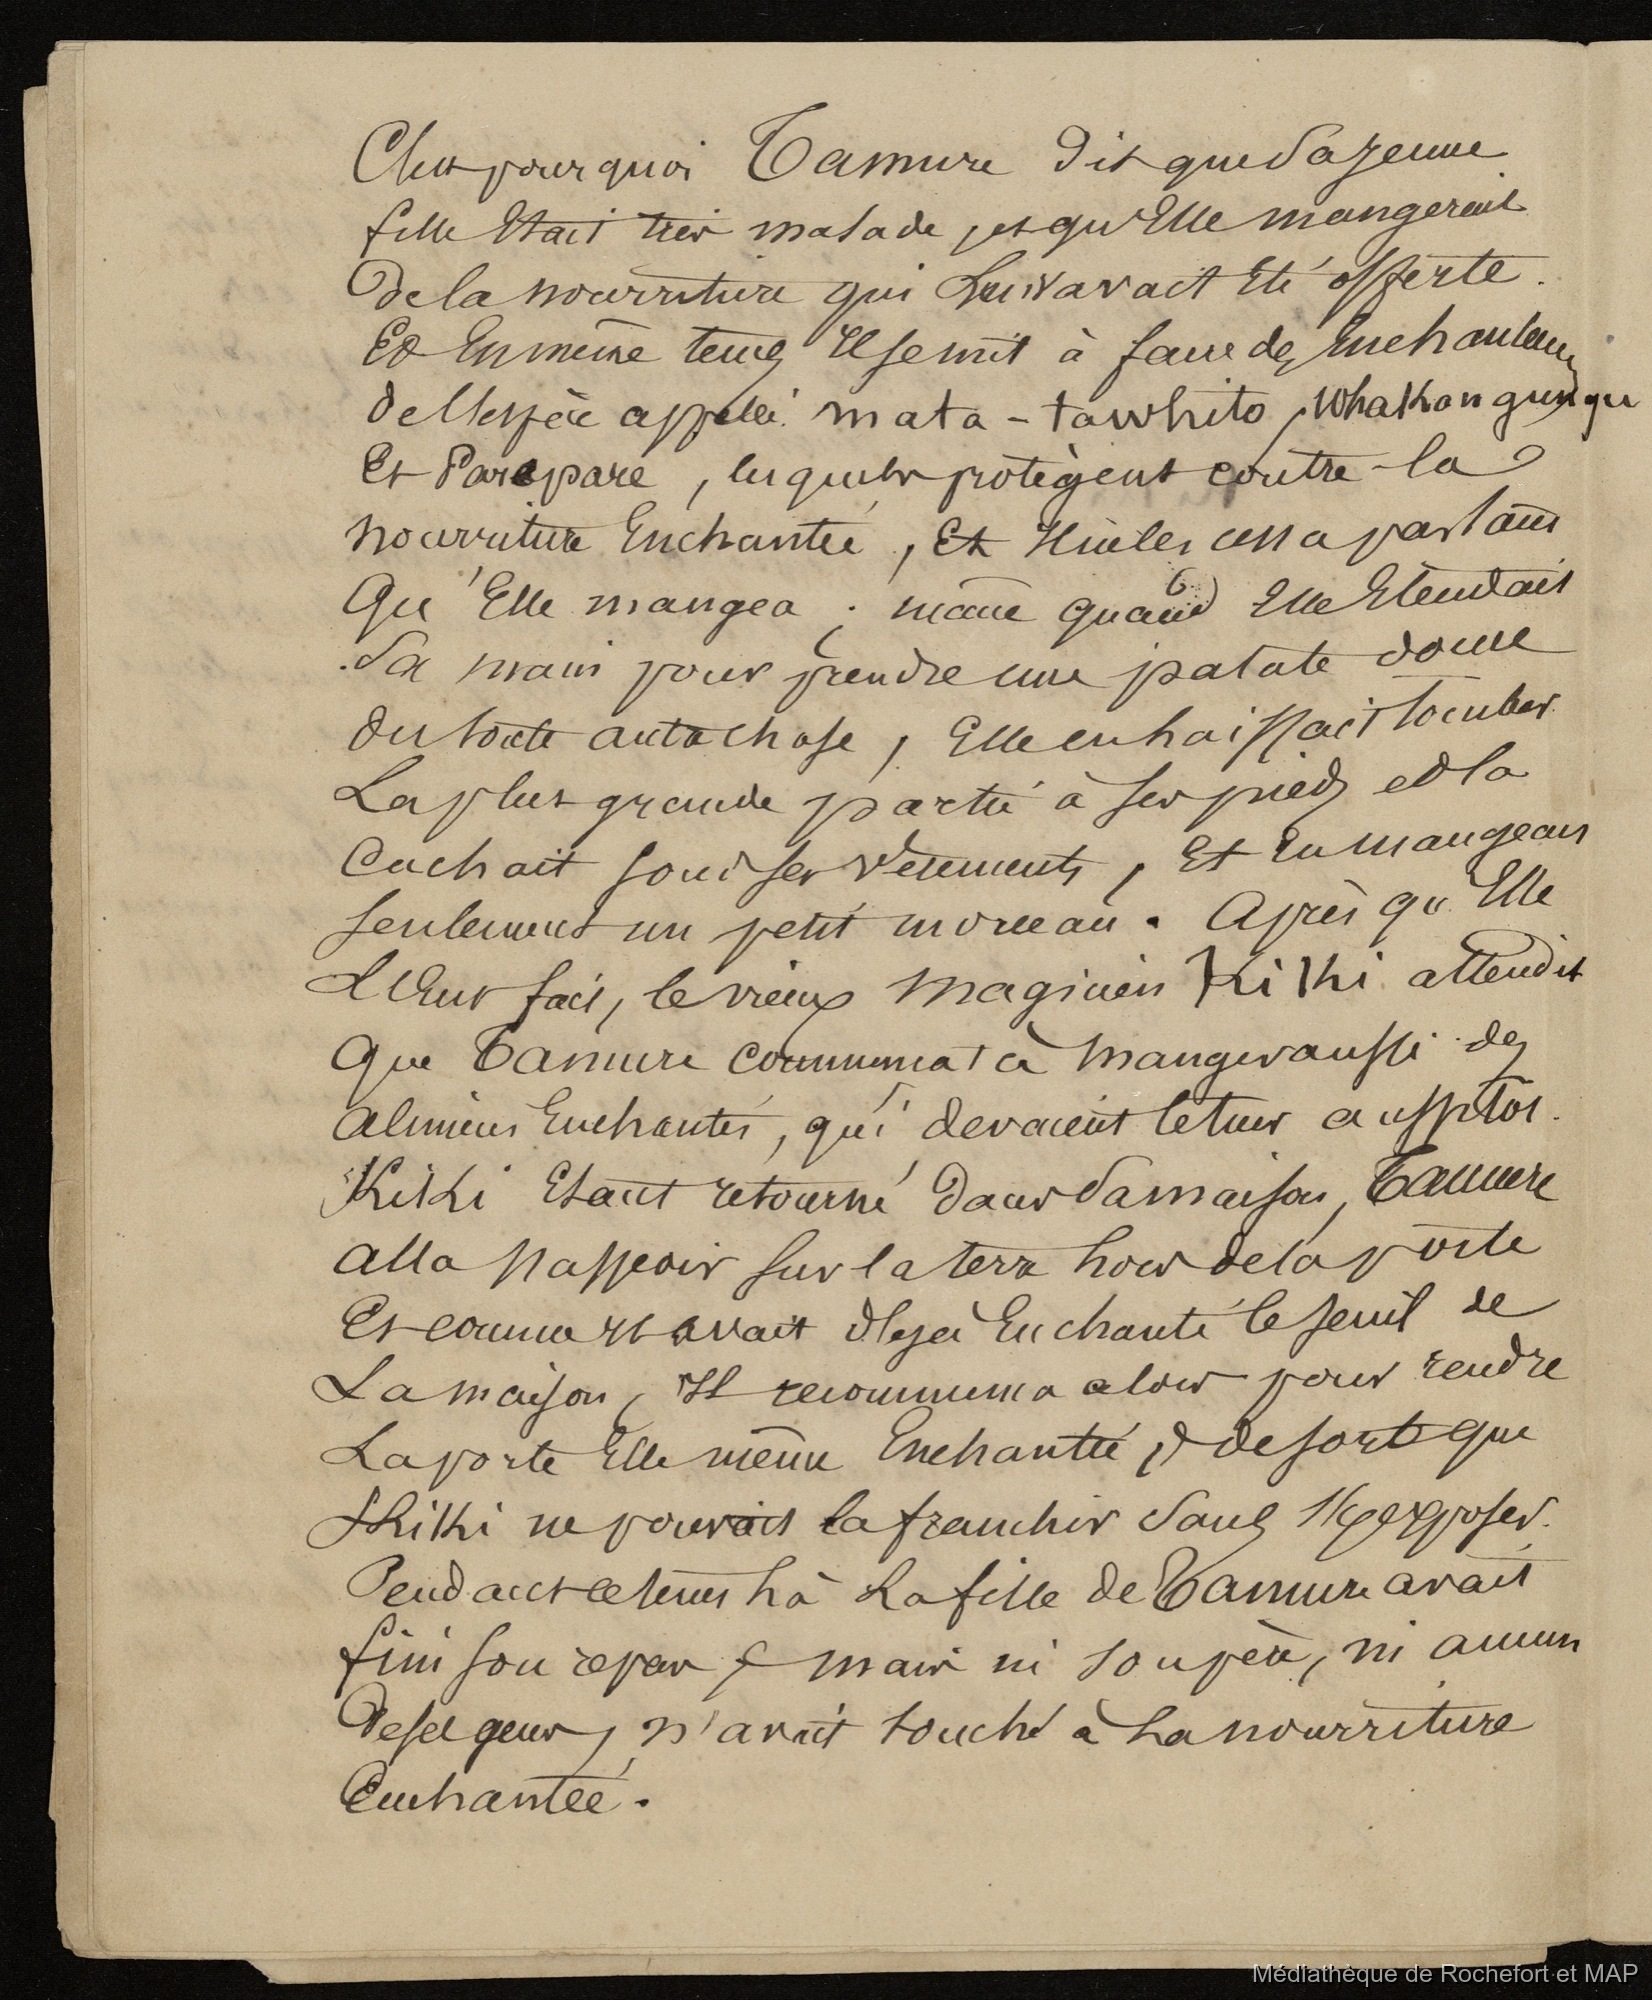 C'est pourquoi Tamure dit que sa jeune
fille était très malade, et qu'Elle mangerait
de la nourriture qui Lui avait été offerte.
Et En même temps Il se mit à faire des Enchantements
de l'espèce appelée mata-tawhito, Whakangungu
Et Parepare, lesquels protègent contre la
nourriture Enchantée, Et Il ne les cessa pas tant
Qu'Elle mangea ; même quand Elle Etendait
Sa main pour prendre une patate douce
ou toute autre chose, Elle en laissait tomber
La plus grande partie à ses pieds et la
Cachait sous ses vêtements, Et En mangeait
seulement un petit morceau. Après qu'Elle
L'Eut fait, le vieux Magicien Kiki attendit
Que Tamure commençat à Manger aussi des
aliments Enchantés, qui devaient le tuer aussitôt.
Kiki Etant retourné dans Sa maison, Tamure
alla s'asseoir sur la terre hors de la porte
Et comme Il avait déjà Enchanté le seuil de
La maison, Il recommença alors pour rendre
La porte Elle même Enchantée, de sorte que
Kiki ne pouvait la franchir Sans s'exposer.
Pendant ce temps là La fille de Tamure avait
fini son repas, mais ni son père, ni aucun
de ses gens, n'avait touché à La nourriture
Enchantée.
Médiathèque de Rochefort et MAP